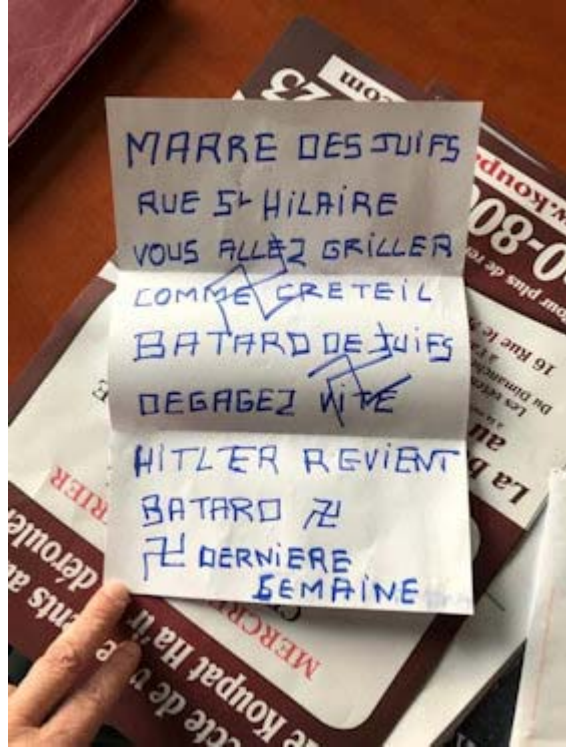 MARRE DES JUIFS
RUE St HILAIRE
VOUS ALLEZ GRILLER
COMME CRETEIL
BATARD DE JUIFS
DEGAGEZ ViTE
HITLER REVIENT
BATARD 卍
卍 DERNiERE
SEMAINE
.com
16 Rue le
Du Dimanche
our plus de
La
au
déroule
Koupat Ha'ir